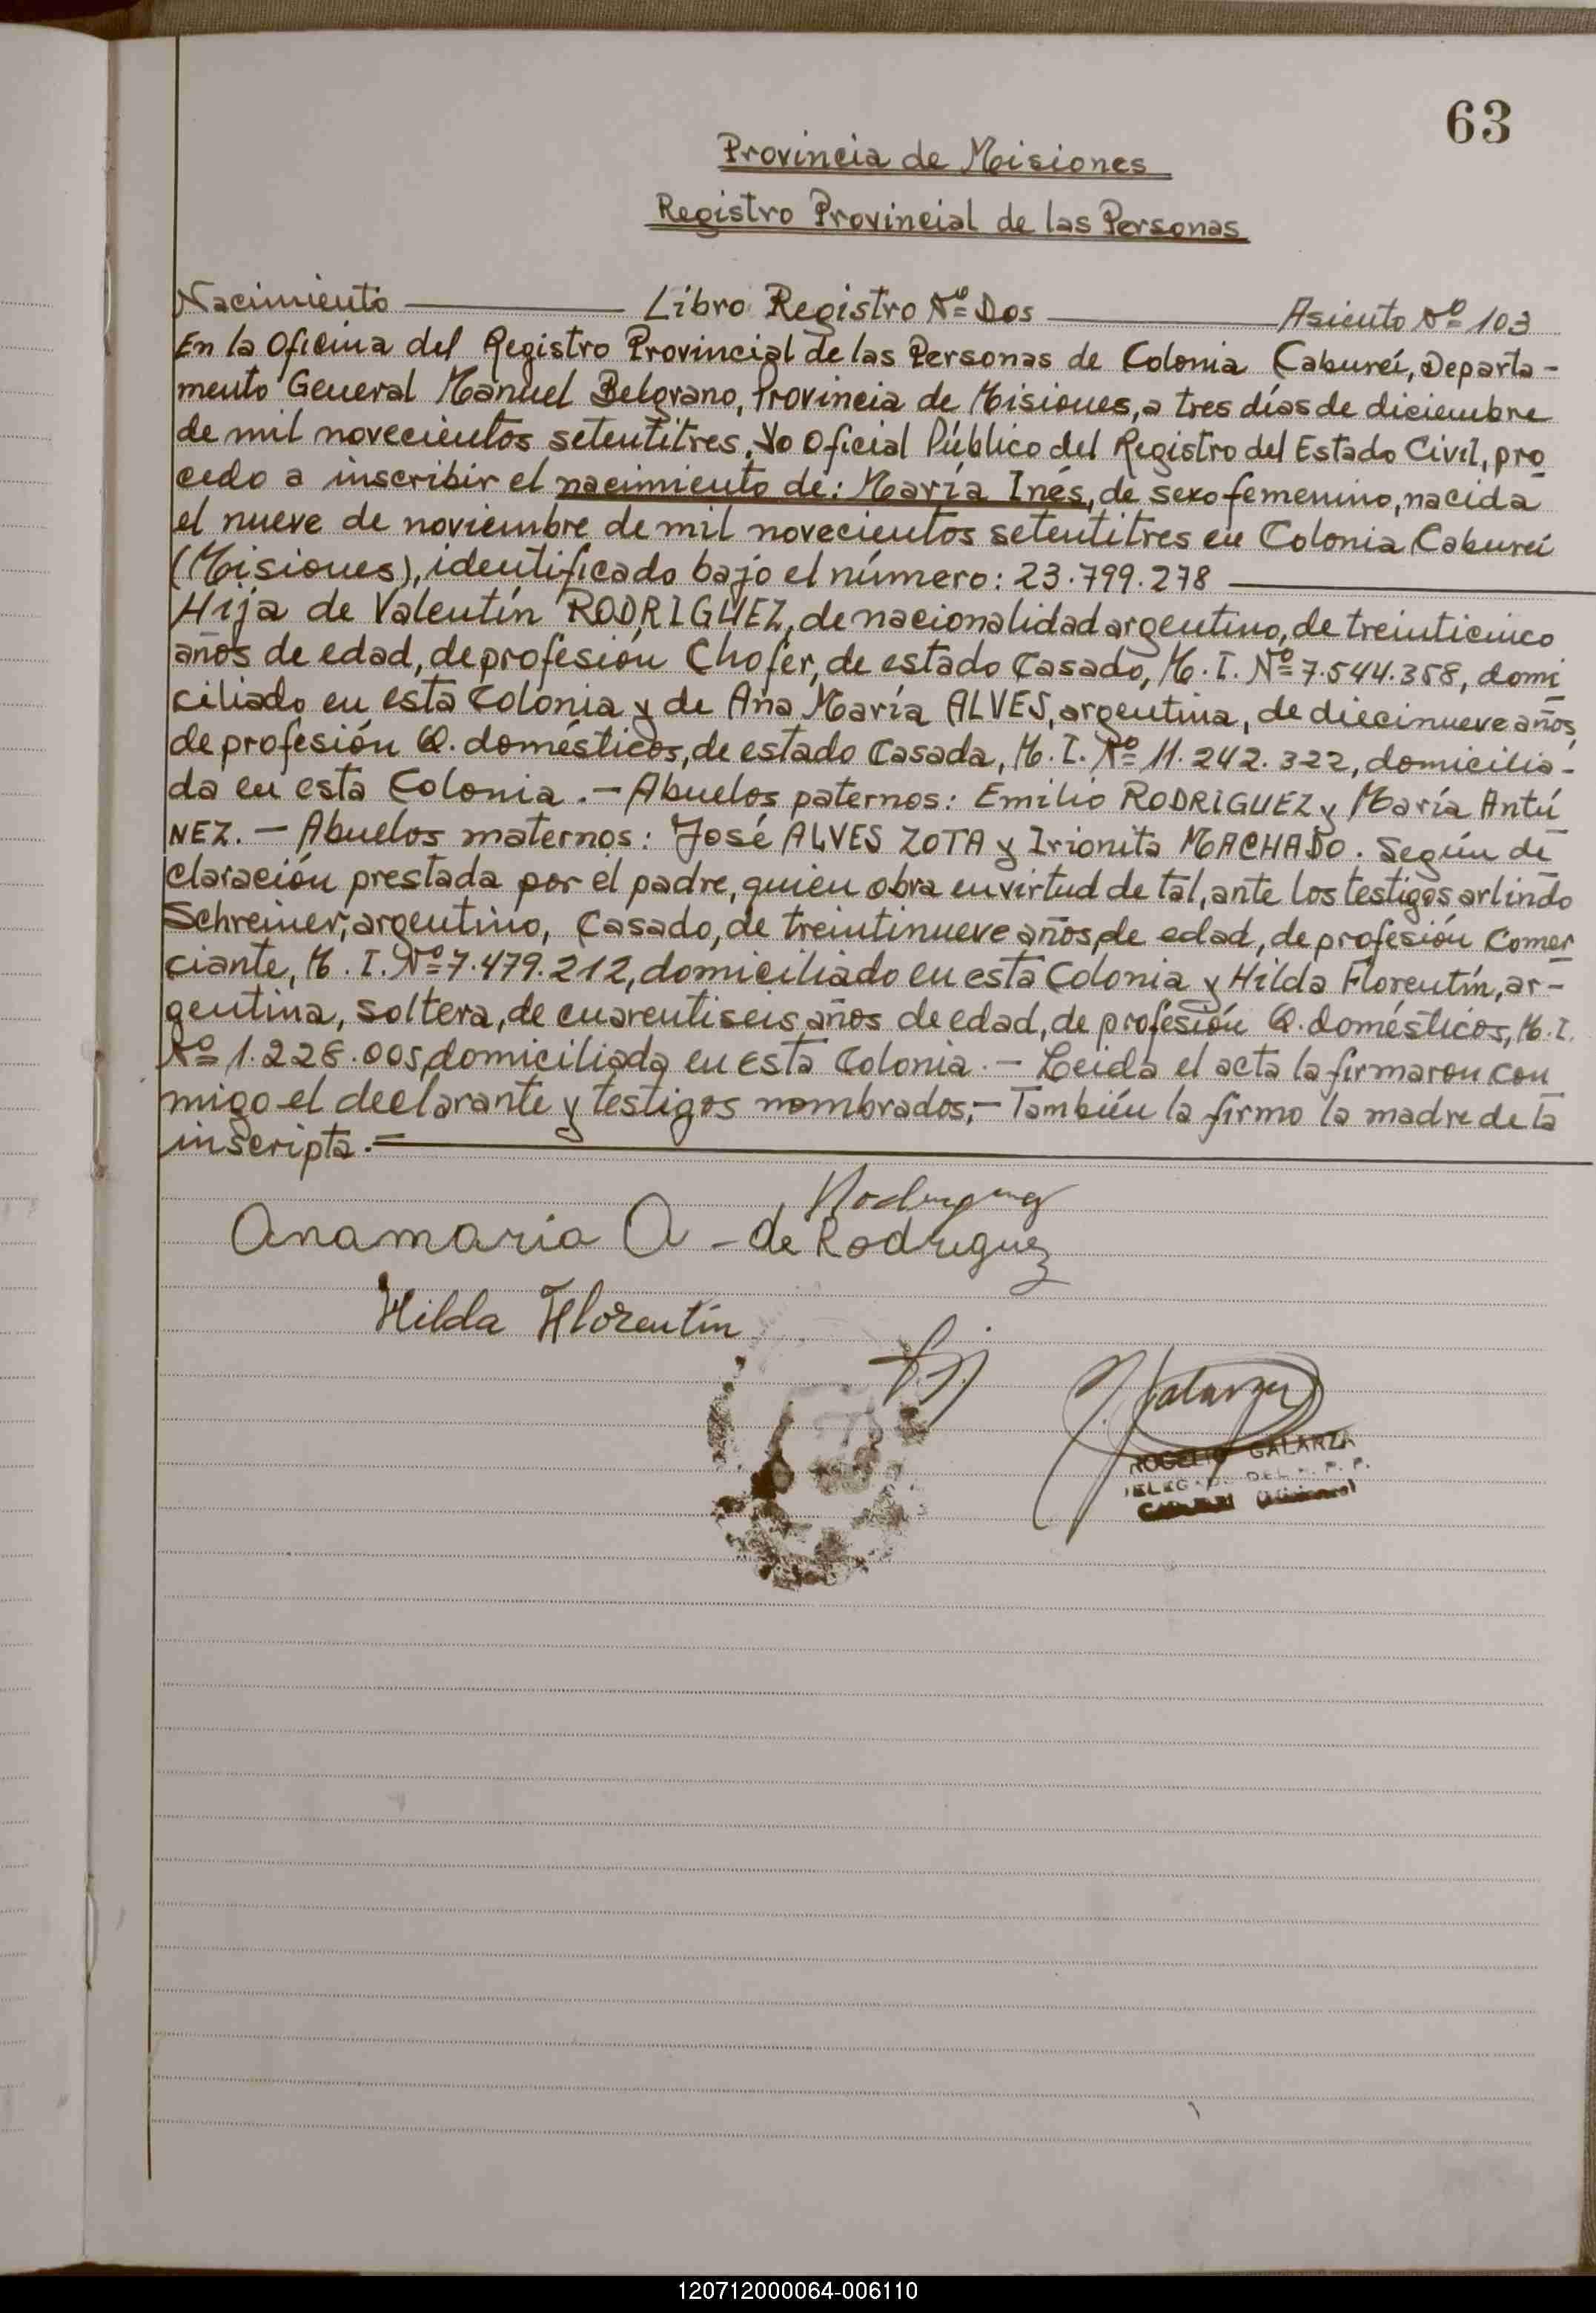 63
Provincia de Misiones
Registro Provincial de las Personas
Nacimiento Libro Registro Nº Dos Asiento Nº 103
En la Oficina del Registro Provincial de las Personas de Colonia Cabureí, Departa-
mento General Manuel Belgrano, Provincia de Misiones, a tres días de diciembre
de mil novecientos setentitres. Yo Oficial Público del Registro del Estado Civil, pro
cedo a inscribir el nacimiento de: María Inés, de sexo femenino, nacida
el nueve de noviembre de mil novecientos setentitres en Colonia Caburei
(Misiones), identificado bajo el número: 23.799.278
Hija de Valentín RODRIGUEZ, de nacionalidad argentino, de treinticinco
años de edad, de profesión Chofer, de estado Casado, M. I. Nº 7.544.358, domi
ciliado en esta Colonia y de Ana María ALVES, argentina, de diecinueve años,
de profesión Q. domésticos, de estado Casada, M. I. Nº 11.242.322, domicilia-
da en esta Colonia.- Abuelos paternos: Emilio RODRIGUEZ y María Antú
NEZ. - Abuelos maternos: José ALVES ZOTA y Irionita MACHADO. Según de
claración prestada por el padre, quien obra en virtud de tal, ante los testigos arlindo
Schreiner, argentino, Casado, de treintinueve años, de edad, de profesión Comer
ciante, M. I. Nº 7.479.212, domiciliado en esta Colonia y Hilda Florentín, ar-
gentina, soltera, de cuarentiseis años de edad, de profesión Q. domésticos, M. I.
Nº 1.228.005, domiciliada en esta Colonia.- Leida el acta la firmaron con
migo el declarante y testigos nombrados.- También la firmo la madre de la
inscripta.=
Rodriguez
Anamaria A - de Rodriguez
Hilda Florentín
J. Galarza
ROGELIO GALARZA
DELEGADO DEL R. P. P.
120712000064-006110